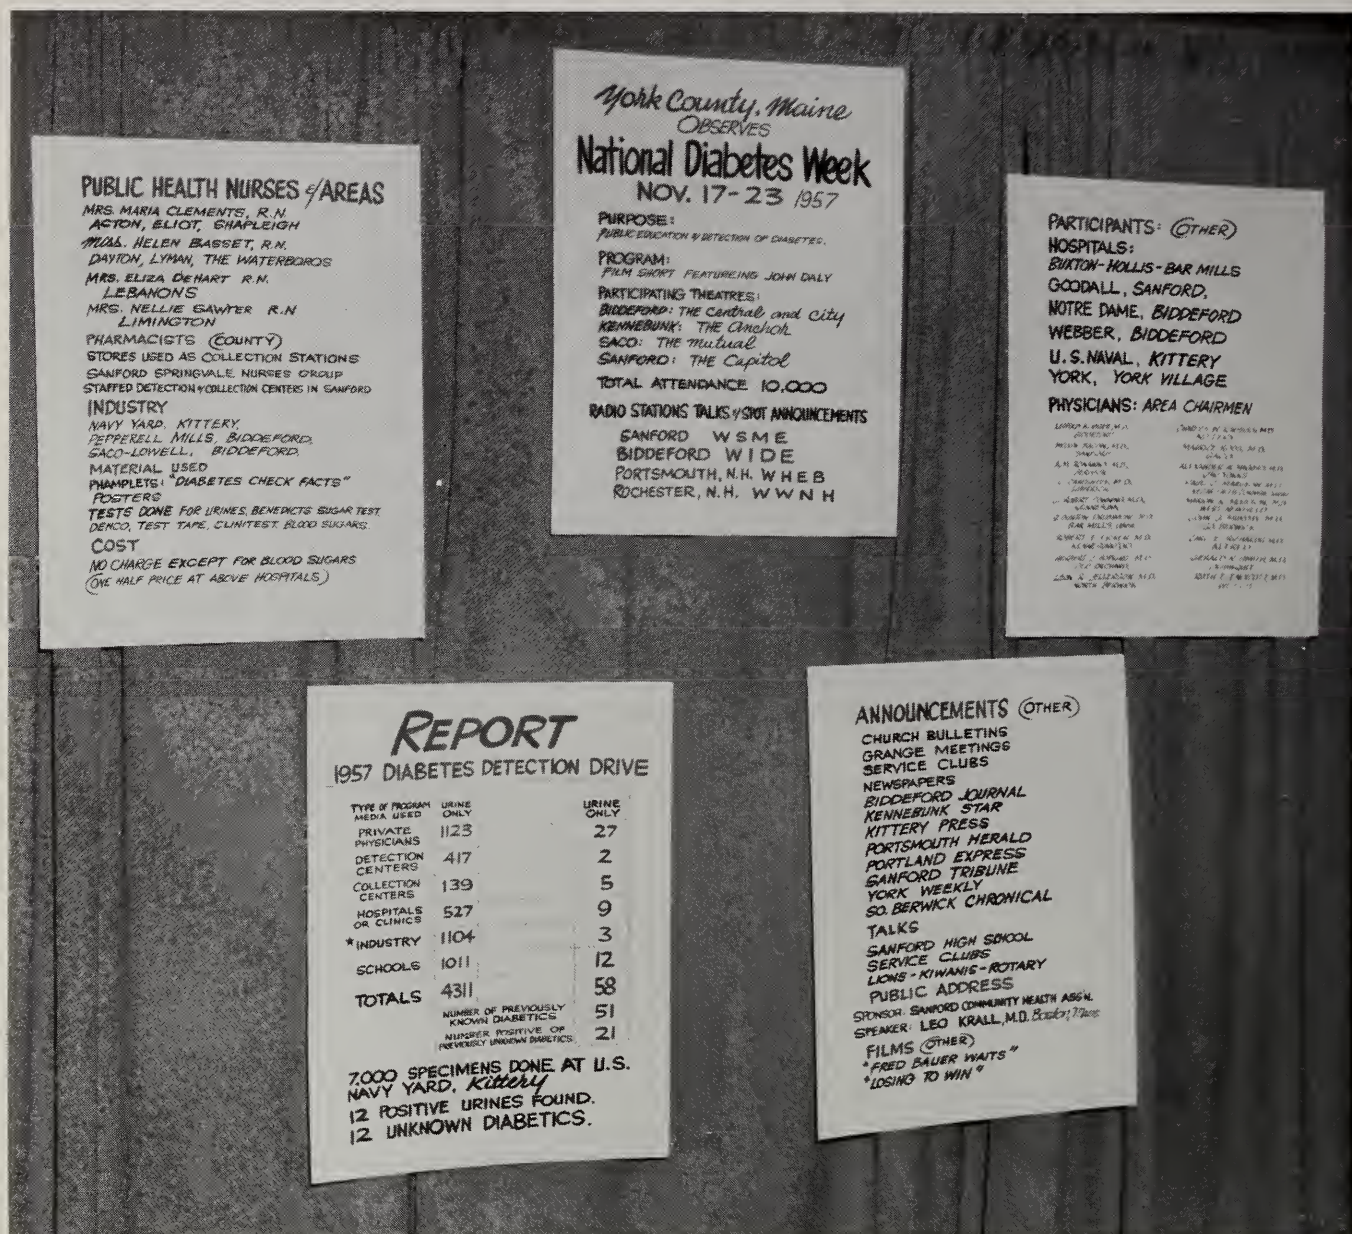 PUBLIC HEALTH NURSES & AREAS
MRS. MARIA CLEMENTS, R.N.
ACTON, ELIOT, SHAPLEIGH
Miss. HELEN BASSET, R.N.
DAYTON, LYMAN, THE WATERBOROS
MRS. ELIZA DEHART R.N.
LEBANONS
MRS. NELLIE SAWYER R.N
LIMINGTON
PHARMACISTS (COUNTY)
STORES USED AS COLLECTION STATIONS
SANFORD SPRINGVALE NURSES GROUP
STAFFED DETECTION & COLLECTION CENTERS IN SANFORD
INDUSTRY
NAVY YARD, KITTERY,
PEPPERELL MILLS, BIDDEFORD,
SACO-LOWELL, BIDDEFORD.
MATERIAL USED
PHAMPLETS: "DIABETES CHECK FACTS"
POSTERS
TESTS DONE FOR URINES, BENEDICTS SUGAR TEST
TEST TAPE, CLINITEST. BLOOD SUGARS.
COST
NO CHARGE EXCEPT FOR BLOOD SUGARS
(ONE HALF PRICE AT ABOVE HOSPITALS)
York County, Maine
OBSERVES
National Diabetes Week
NOV. 17-23 1957
PURPOSE:
PUBLIC EDUCATION & DETECTION OF DIABETES.
PROGRAM:
FILM SHORT FEATUREING JOHN DALY
PARTICIPATING THEATRES:
BIDDEFORD: THE Central and City
KENNEBUNK: THE Anchor
SACO: THE Mutual
SANFORD: THE Capitol
TOTAL ATTENDANCE 10,000
RADIO STATIONS TALKS & SPOT ANNOUNCEMENTS
SANFORD WSME
BIDDEFORD WIDE
PORTSMOUTH, N.H. WHEB
ROCHESTER, N.H. WWNH
PARTICIPANTS: (OTHER)
HOSPITALS:
BUXTON-HOLLIS-BAR MILLS
GOODALL, SANFORD,
NOTRE DAME, BIDDEFORD
WEBBER, BIDDEFORD
U.S. NAVAL, KITTERY
YORK, YORK VILLAGE
PHYSICIANS: AREA CHAIRMEN
REPORT
1957 DIABETES DETECTION DRIVE
TYPE OF PROGRAM URINE URINE
MEDIA USED ONLY ONLY
PRIVATE PHYSICIANS 1123 27
DETECTION CENTERS 417 2
COLLECTION CENTERS 139 5
HOSPITALS OR CLINICS 527 9
*INDUSTRY 1104 3
SCHOOLS 1011 12
TOTALS 4311 58
NUMBER OF PREVIOUSLY KNOWN DIABETICS 51
NUMBER POSITIVE OF PREVIOUSLY UNKNOWN DIABETICS 21
7,000 SPECIMENS DONE AT U.S.
NAVY YARD, Kittery
12 POSITIVE URINES FOUND.
12 UNKNOWN DIABETICS.
ANNOUNCEMENTS (OTHER)
CHURCH BULLETINS
GRANGE MEETINGS
SERVICE CLUBS
NEWSPAPERS
BIDDEFORD JOURNAL
KENNEBUNK STAR
KITTERY PRESS
PORTSMOUTH HERALD
PORTLAND EXPRESS
SANFORD TRIBUNE
YORK WEEKLY
SO. BERWICK CHRONICAL
TALKS
SANFORD HIGH SCHOOL
SERVICE CLUBS
LIONS-KIWANIS-ROTARY
PUBLIC ADDRESS
SPONSOR: SANFORD COMMUNITY HEALTH ASS'N.
SPEAKER: LEO KRALL, M.D. Boston, Mass
FILMS (OTHER)
"FRED BAUER WAITS"
"LOSING TO WIN"